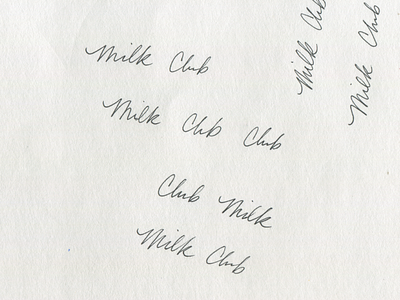 Milk Club
Milk Clib Club
Club Milk
Milk Club
Milk Club
Milk Club